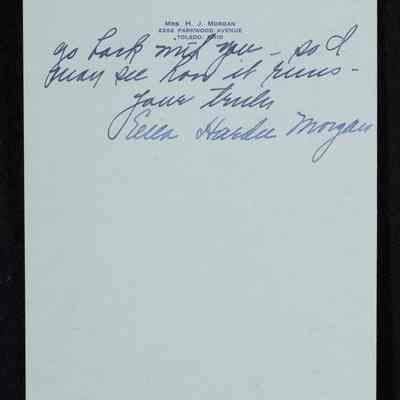 Mrs. H. J. Morgan
Parkwood Avenue
Toledo, Ohio
go back with you – so I
may see how it runs –
Your truly
Ella Hardee Morgan